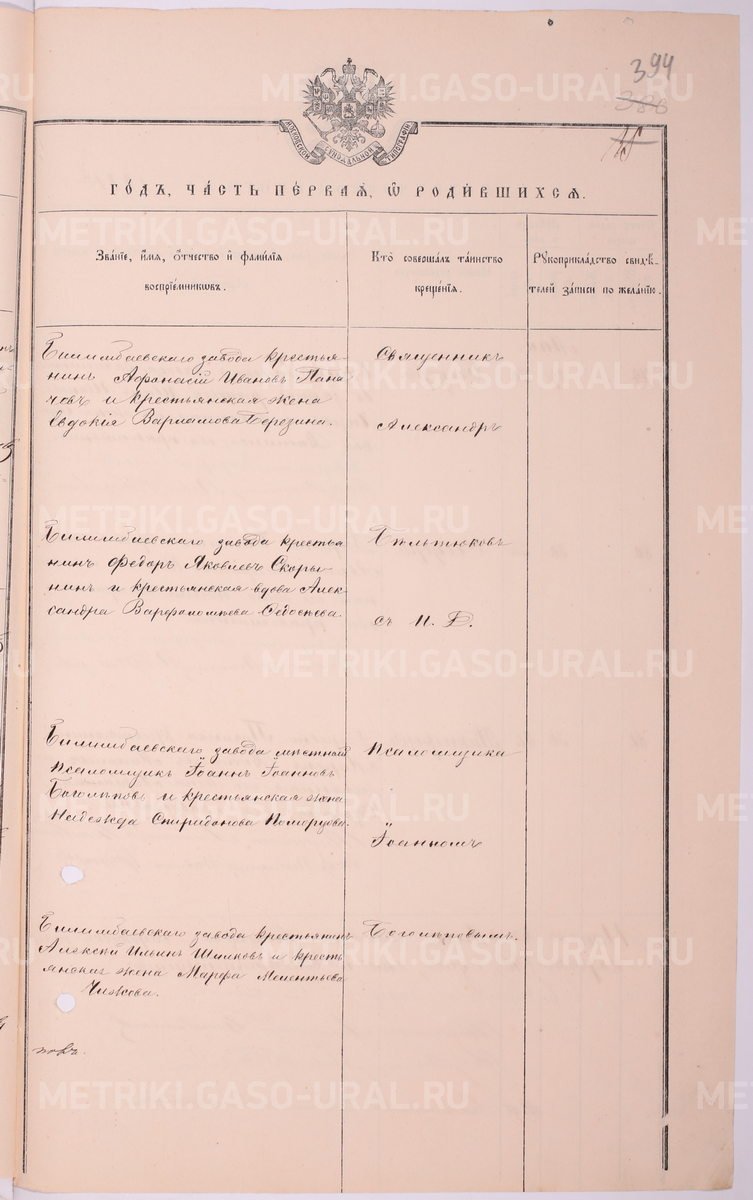 394
386
МОСКОВСКОЙ СѴНОДАЛЬНОЙ ТИПОГРАФІИ
ГО́ДЪ, ЧА́СТЬ ПЕ́РВАѦ, Ѡ҆ РОДИ́ВШИХСѦ.
Зва́нїе, и҆́мѧ, ѻ҆́тчество и҆ фами́лїѧ
воспрїе́мникѡвъ.
Кто̀ соверша́лъ та́инство
креще́нїѧ.
Рꙋкоприкла́дство свидѣ́-
телей за́писи по жела́нїю.
Билимбаевскаго завода крестья-
нинъ Афанасій Ивановъ Пана-
човъ и крестьянская жена
Евдокія Варламова Березина.
Священникъ
Александръ
Билимбаевскаго завода крестья
нинъ Федоръ Яковлевъ Скоры-
нинъ и крестьянская вдова Алек-
сандра Варфоломѣева Ѳедосѣева.
Бѣльтюковъ
съ И. Д.
Билимбаевскаго завода мѣстный
Псаломщикъ Іоаннъ Іоанновъ
Боголѣповъ и крестьянская жена
Надежда Спиридонова Поморцова.
Псаломщика
Іоанномъ
Билимбаевскаго завода крестьянинъ
Алексѣй Ильинъ Шилковъ и кресть
янская жена Марфа Мелентьева
Чижова.
Боголѣповымъ.
METRIKI.GASO-URAL.RU